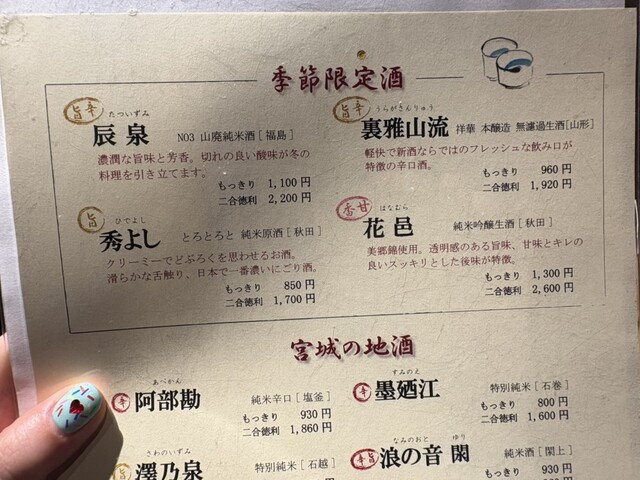 季節限定酒
旨辛
たついずみ
辰泉 NO3 山廃純米酒[福島]
濃潤な旨味と芳香。切れの良い酸味が冬の
料理を引き立てます。
もっきり 1,100円
二合徳利 2,200円
旨辛
うらがさんりゅう
裏雅山流 祥華 本醸造 無濾過生酒[山形]
軽快で新酒ならではのフレッシュな飲み口が
特徴の辛口酒。
もっきり 960円
二合徳利 1,920円
旨
ひでよし
秀よし とろとろと 純米原酒[秋田]
クリーミーでどぶろくを思わせるお酒。
滑らかな舌触り、日本で一番濃いにごり酒。
もっきり 850円
二合徳利 1,700円
香甘
はなむら
花邑 純米吟醸生酒[秋田]
美郷錦使用。透明感のある旨味、甘味とキレの
良いスッキリとした後味が特徴。
もっきり 1,300円
二合徳利 2,600円
宮城の地酒
辛
あべかん
阿部勘 純米辛口[塩釜]
もっきり 930円
二合徳利 1,860円
辛
すみのえ
墨廼江 特別純米[石巻]
もっきり 800円
二合徳利 1,600円
旨
さわのいずみ
澤乃泉 特別純米[石越]
辛旨
なみのおと ゆり
浪の音 閖 純米酒[閖上]
もっきり 930円